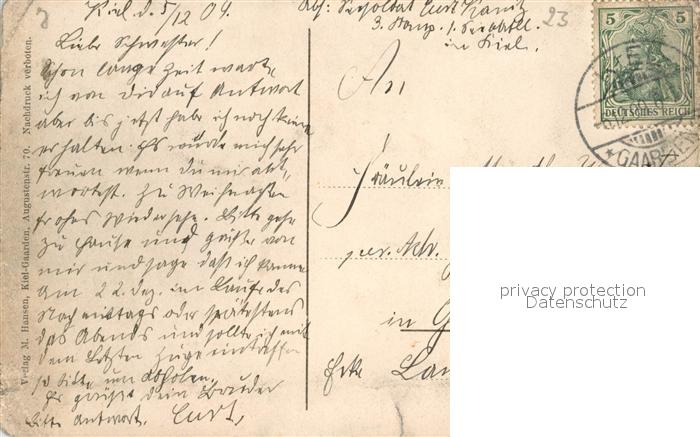 Kiel d. 5/12 09.
Liebe Schwester!
Schon lange Zeit warte
ich von dir auf Antwort
aber bis jetzt habe ich noch keine
erhalten. Es würde mich sehr
freuen wenn du mir ant-
wortest. Zu Weihnachten
frohes Wiedersehn. Bitte gehe
zu Hause und grüße von
mir und sage daß ich komme
am 22. Dez. im Laufe des
Nachmittags oder spätestens
des Abends und sollte ich mit
dem Letzten Zuge eintreffen
so bitte um Abholen.
Es grüßt dein Bruder
Bitte Antwort. Curt,
Abs: Seesoldat Curt
3. Komp. 1. Seebatl.
in Kiel.
23
An
Fräulein
per. Adr.
in G
Ecke Lan
5 5
DEUTSCHES REICH
KIEL
*GAARDEN
Verlag M. Hansen, Kiel-Gaarden, Augustenstr. 70. Nachdruck verboten.
privacy protection
Datenschutz